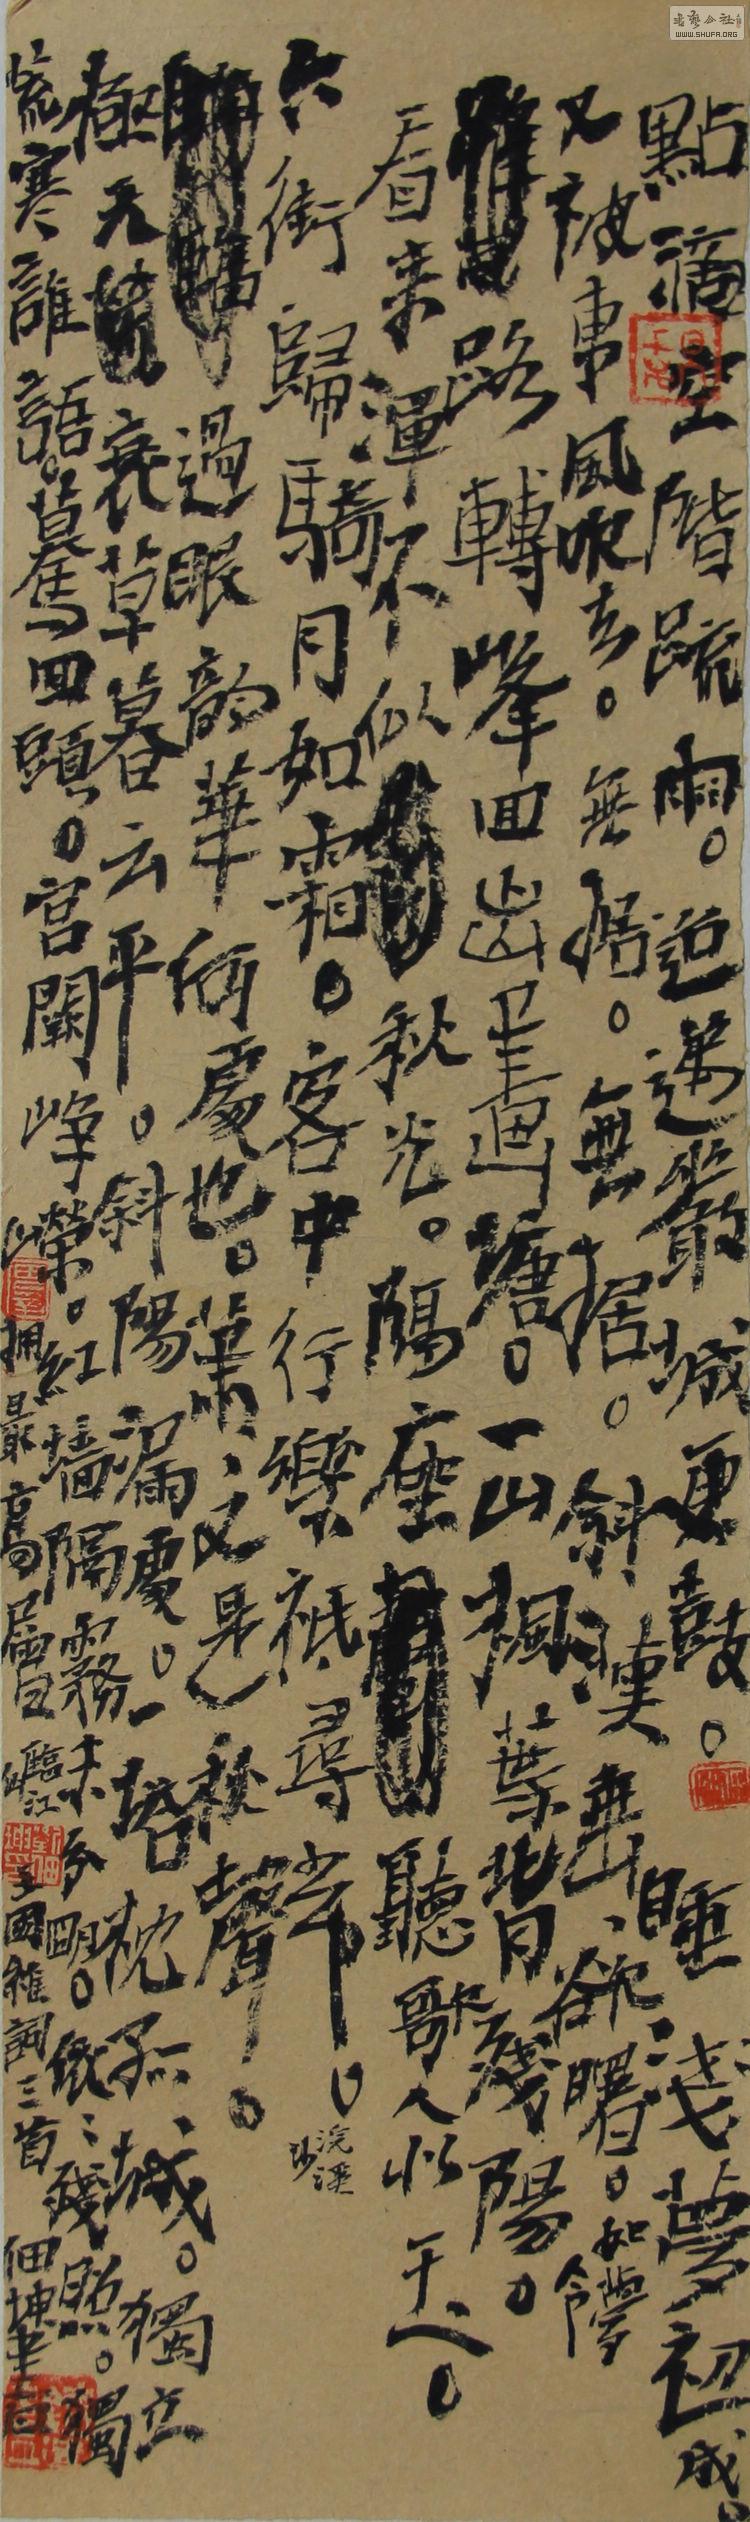 書藝公社
WWW.SHUFA.ORG
點滴空階疏雨。迢遞嚴城更鼓。睡淺夢初成。
又被東風吹去。無據。無據。斜漢垂垂欲曙。如夢令
路轉峰回出畫塘。一山楓葉背殘陽。
看來渾不似秋光。隔座聽歌人似玉。
六街歸騎月如霜。客中行樂祗尋常。浣溪沙
過眼韶華何處也。蕭〻又是秋聲。
極天衰草暮云平。斜陽漏處。一塔枕孤城。獨立
荒寒誰語。驀回頭。宮闕崢嶸。紅墻隔霧未分明。依〻殘照。獨
擁最高層 臨江仙 王國維詞三首 佃坤筆